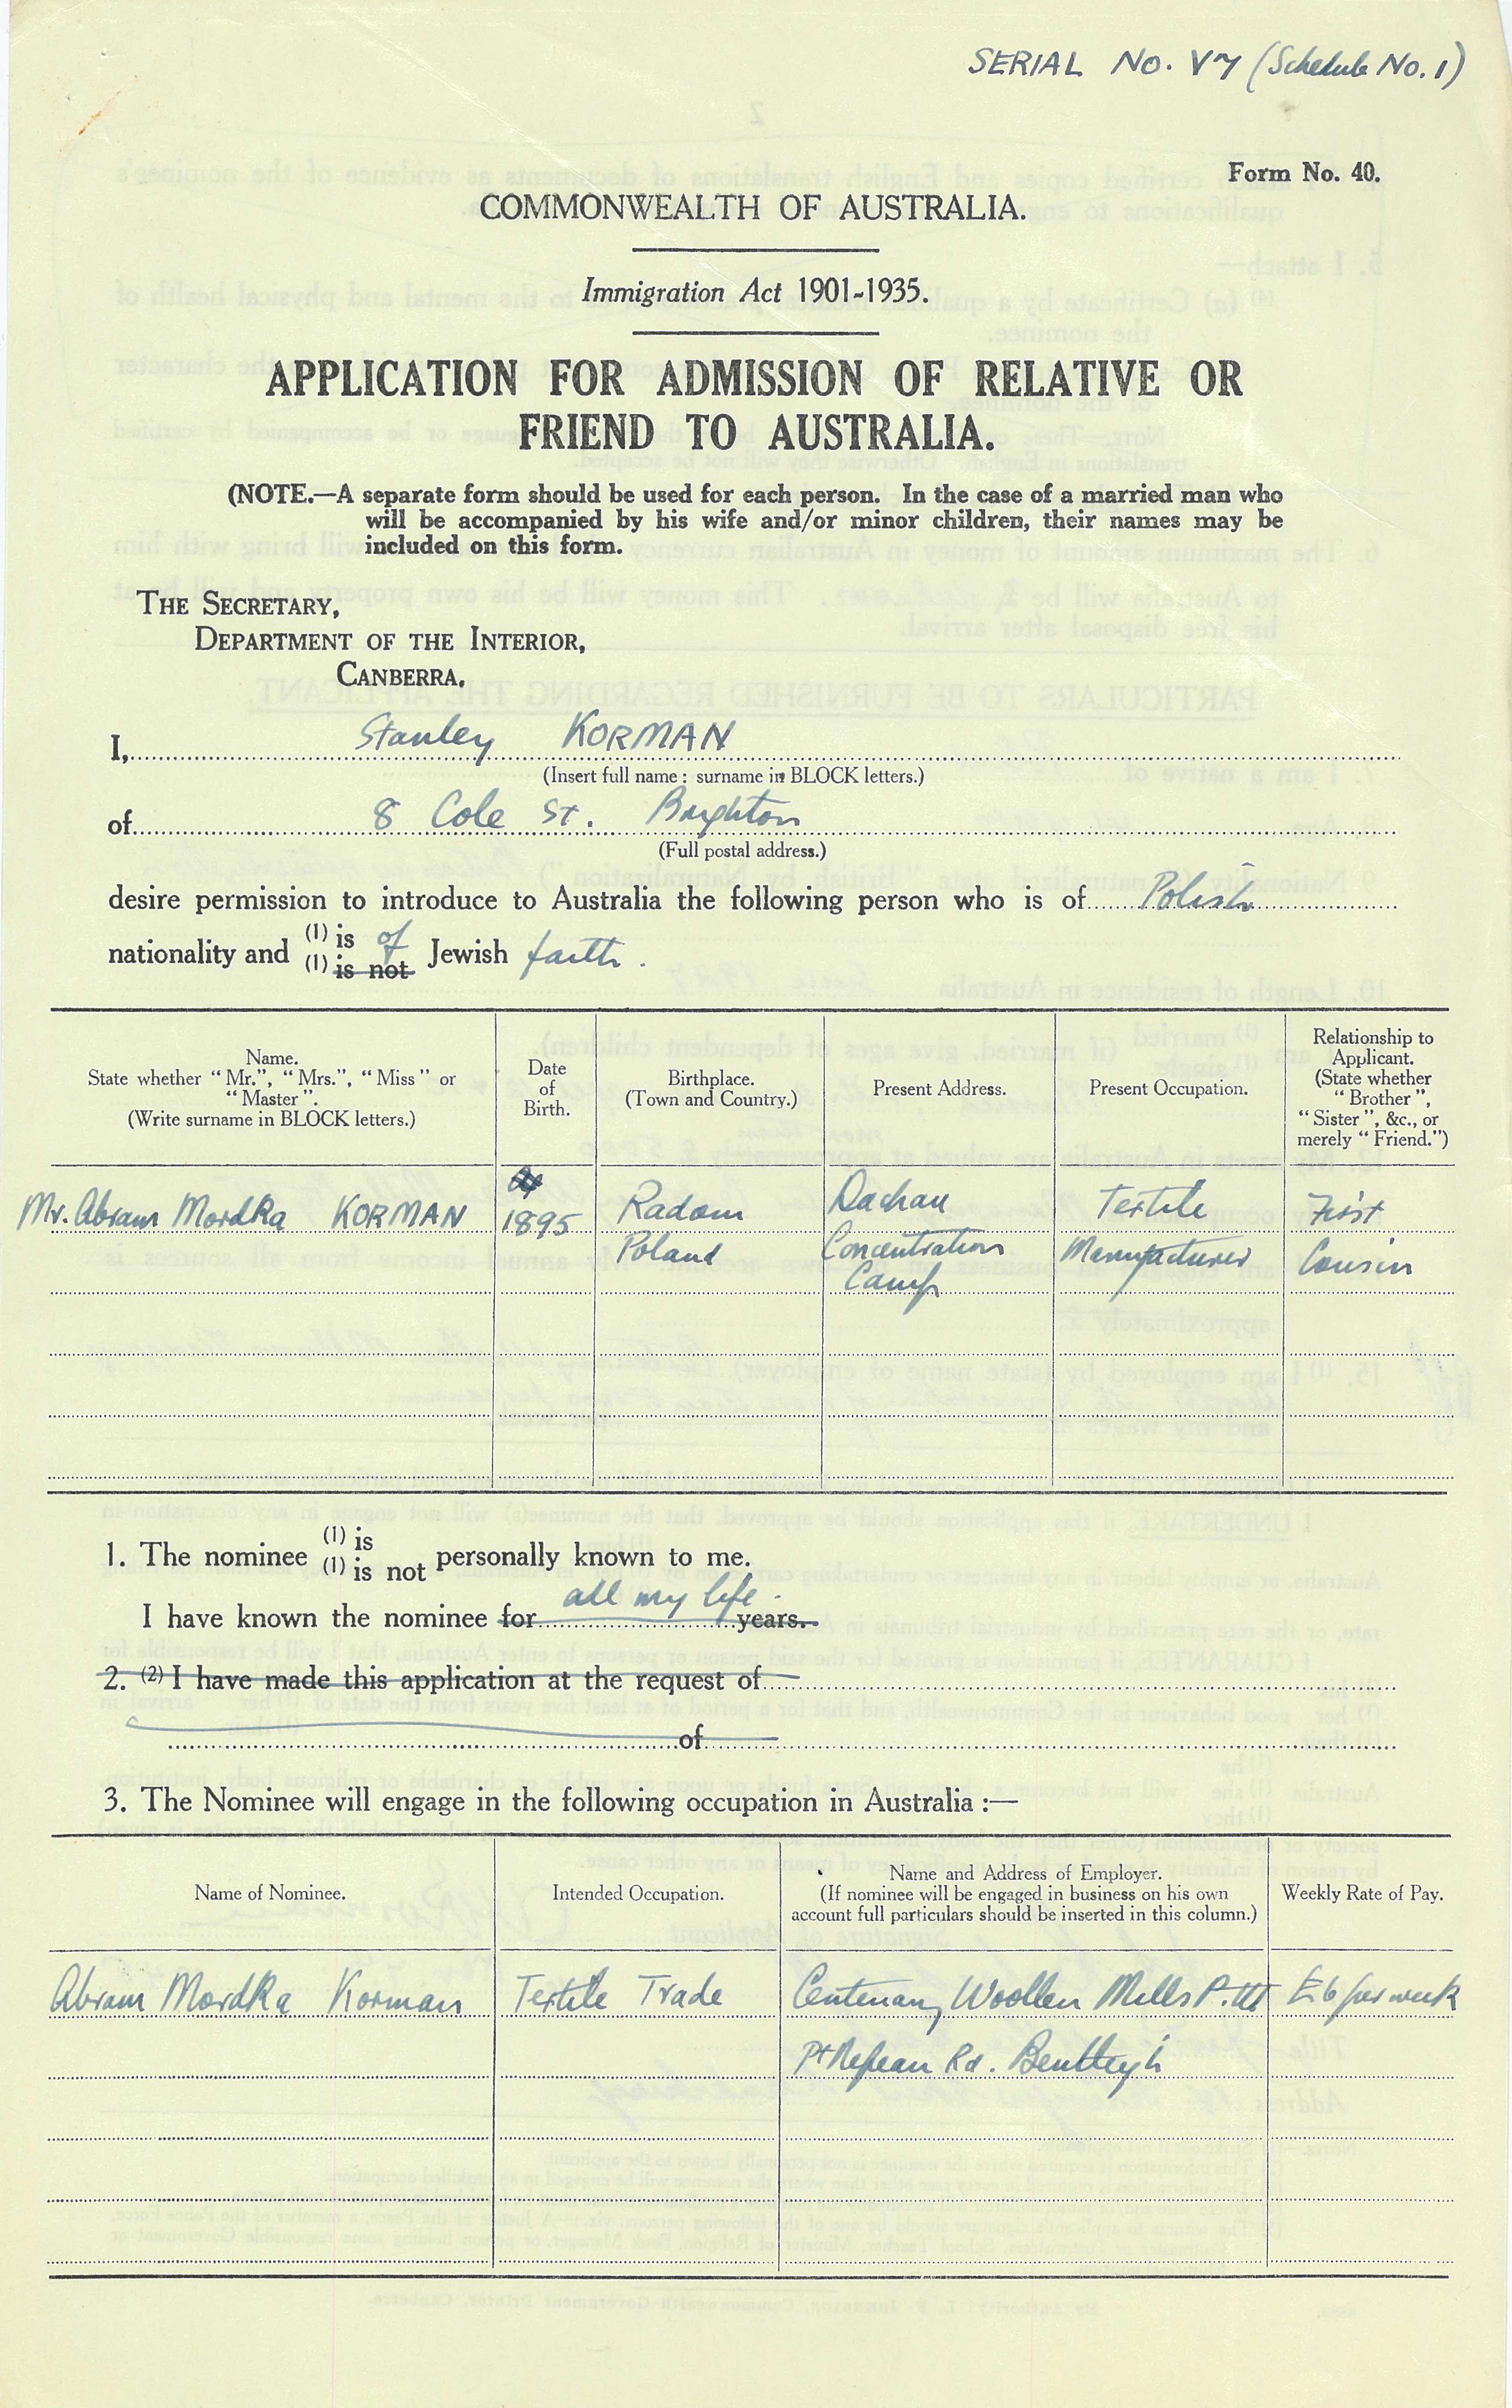 SERIAL No. V7 (Schedule No. 1)
Form No. 40.
COMMONWEALTH OF AUSTRALIA.
Immigration Act 1901-1935.
APPLICATION FOR ADMISSION OF RELATIVE OR
FRIEND TO AUSTRALIA.
(NOTE.—A separate form should be used for each person. In the case of a married man who
will be accompanied by his wife and/or minor children, their names may be
included on this form.
THE SECRETARY,
DEPARTMENT OF THE INTERIOR,
CANBERRA.
I, Stanley KORMAN
(Insert full name: surname in BLOCK letters.)
of 8 Cole St. Brighton
(Full postal address.)
desire permission to introduce to Australia the following person who is of Polish
nationality and (1) is of Jewish faith.
(1) is not
Name.
State whether "Mr.", "Mrs.", "Miss" or
"Master".
(Write surname in BLOCK letters.)
Date
of
Birth.
Birthplace.
(Town and Country.)
Present Address.
Present Occupation.
Relationship to
Applicant.
(State whether
"Brother",
"Sister", &c., or
merely "Friend.")
Mr. Abram Mordka KORMAN
1895
Radom
Poland
Dachau
Concentration
Camp
Textile
Manufacturer
First
Cousin
1. The nominee (1) is
(1) is not personally known to me.
I have known the nominee for all my life. years.
2. (2) I have made this application at the request of
of
3. The Nominee will engage in the following occupation in Australia :—
Name of Nominee.
Intended Occupation.
Name and Address of Employer.
(If nominee will be engaged in business on his own
account full particulars should be inserted in this column.)
Weekly Rate of Pay.
Abram Mordka Korman
Textile Trade
Centenary Woollen Mills P. Ltd
£6 per week
Pt Nepean Rd. Bentleigh